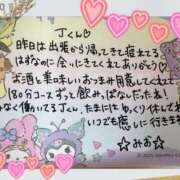 Jくん♡
昨日は出張から帰ってきて疲れてる
はずなのに会いにきてくれてありがとう♡
お酒と美味しいおつまみ用意してくれてて
180分コースずっと飲みっぱなしだったね！
みなく働いてるJくん、たまにはゆっくり休んでね
いつでも癒しに行きます
☆みお☆